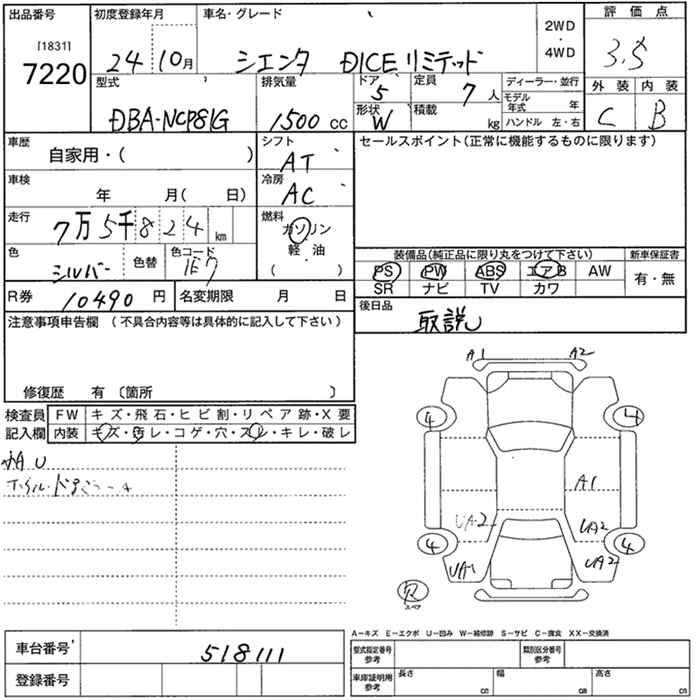 出品番号
[1831]
7220
初度登録年月
24 10月
車名・グレード
シエンタ DICE リミテッド
2WD
・
4WD
評価点
3.5
外装 内装
C B
型式
DBA-NCP81G
排気量
1500 cc
ドア
5
定員
7 人
形状
W
積載
kg
ディーラー・並行
モデル年式 年
ハンドル 左・右
車歴
自家用・( )
シフト
AT
車検
年 月( 日)
冷房
AC
走行
7万5千824 km
燃料
ガソリン
軽・油
( )
色
シルバー
色替
色コード
1E7
R券
10490 円
名変期限 月 日
セールスポイント(正常に機能するものに限ります)
装備品(純正品に限り丸をつけて下さい)
新車保証書
PS PW ABS エアB AW
SR ナビ TV カワ
有・無
後日品
取説
注意事項申告欄 (不具合内容等は具体的に記入して下さい)
修復歴 有 〔箇所 〕
検査員記入欄
FW キズ・飛石・ヒビ割・リペア跡・X要
内装 キズ・汚レ・コゲ・穴・スレ・キレ・破レ
A1 A2
4 4
A1
UA2 UA2
4 4
UA1 UA2
スペア
A−キズ E−エクボ U−凹み W−補修跡 S−サビ C−腐食 XX−交換済
車台番号
518111
登録番号
型式指定番号
参考
類別区分番号
参考
車庫証明用
参考
長さ cm
幅 cm
高さ cm